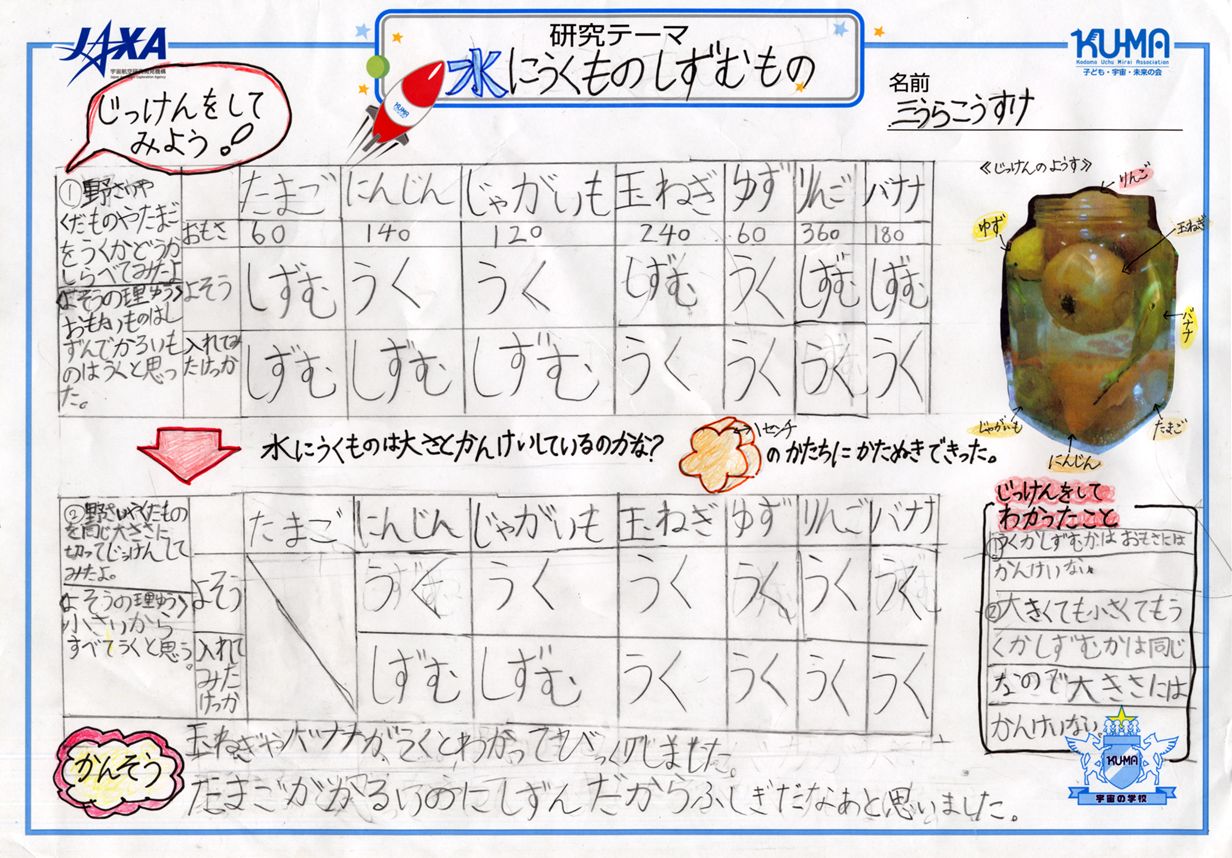 JAXA
宇宙航空研究開発機構
Japan Aerospace Exploration Agency
研究テーマ
水にうくものしずむもの
KU-MA
Kodomo Uchu Mirai Association
子ども・宇宙・未来の会
名前
三うらこうすけ
じっけんをして
みよう!
KU-MA
①野さいや
くだものやたまご
をうくかどうか
しらべてみたよ
<よそうの理ゆう>
おもたいものはし
ずんでかるいも
のはうくと思っ
た。
たまご にんじん じゃがいも 玉ねぎ ゆず りんご バナナ
おもさ 60 140 120 240 60 360 180
よそう しずむ うく うく しずむ うく しずむ しずむ
入れてみ
たけっか
しずむ しずむ しずむ うく うく うく うく
《じっけんのようす》
りんご
ゆず
玉ねぎ
バナナ
じゃがいも
にんじん
たまご
水にうくものは大さとかんけいしているのかな?
1センチ
のかたちにかたぬきできった。
②野さいやくだもの
を同じ大きさに
切ってじっけんして
みたよ。
<よそうの理ゆう>
小さいから
すべてうくと思う。
たまご にんじん じゃがいも 玉ねぎ ゆず りんご バナナ
よそう うく うく うく うく うく うく
入れて
みた
けっか
しずむ しずむ うく うく うく うく
じっけんをして
わかったこと
①うくかしずむかはおもさには
かんけいない
②大きくても小さくてもう
くかしずむかは同じ
なので大きさには
かんけいない。
KU-MA
宇宙の学校
かんそう
玉ねぎやバナナがうくとわかってもびっくりしました。
たまごがかるいのにしずんだからふしぎだなあと思いました。